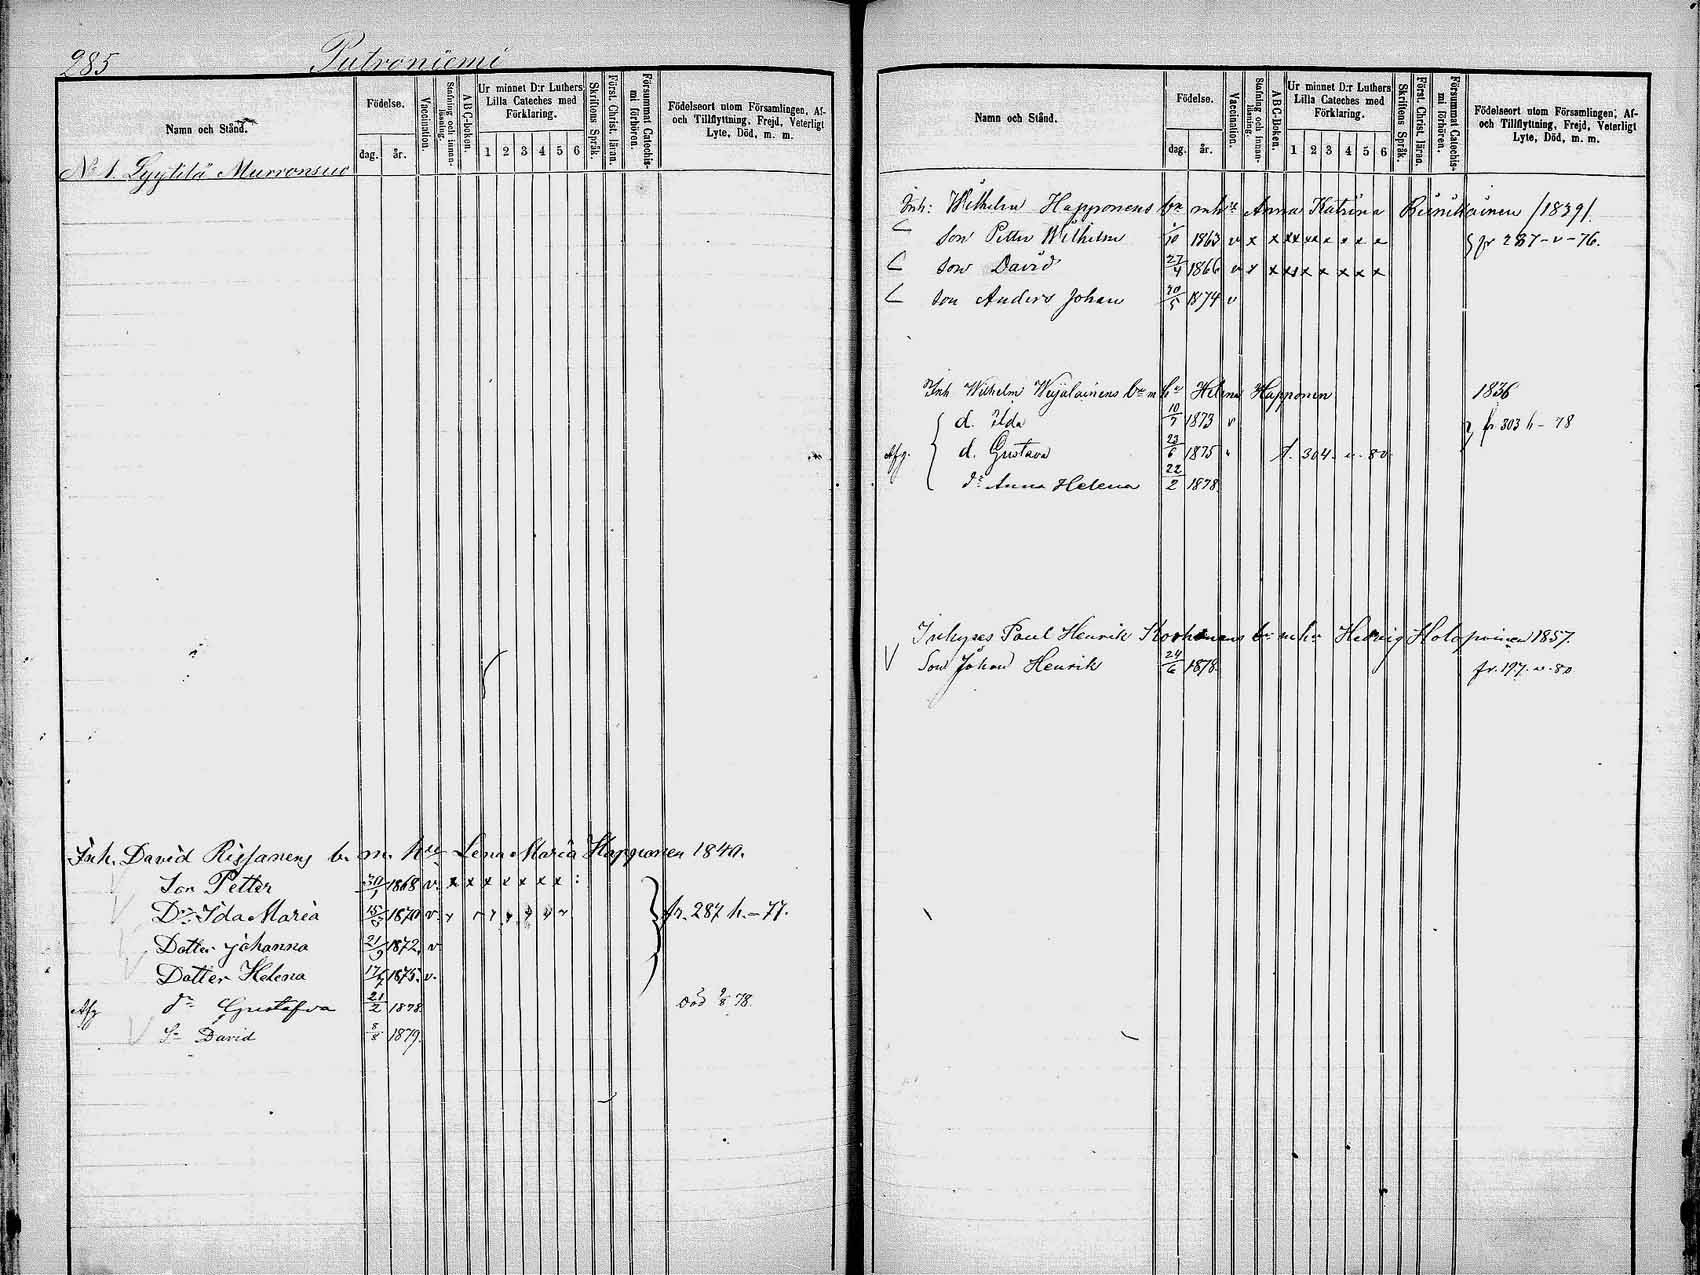 285 Putroniemi
Namn och Stånd.
Födelse.
dag. år.
Vaccination.
Stafning och innanläsning.
A B C-boken.
Ur minnet D:r Luthers Lilla Cateches med Förklaring.
1 2 3 4 5 6
Skriftens Språk.
Först. Christ. läran.
Försummat Catechismi förhören.
Födelseort utom Församlingen, Af- och Tillflyttning, Frejd, Veterligt Lyte, Död, m. m.
No 1. Lyytilä Murronsuo
Inh. David Rissanens b. m. h. Lena Maria Happonen 1840.
Son Petter 30/1 1868 v. x x x x x x x
Dr Ida Maria 15/5 1870 v. fr. 287 h. - 77.
Dotter Johanna 21/9 1872. v
Dotter Helena 1875. v.
Afg dr Gustafva 21/2 1878. Död 9/8 78.
Sn David 8/8 1879.
Namn och Stånd.
Födelse.
dag. år.
Vaccination.
Stafning och innanläsning.
A B C-Boken.
Ur minnet D:r Luthers Lilla Cateches med Förklaring.
1 2 3 4 5 6
Skriftens Språk.
Först. Christ. läran.
Försummat Catechismi förhören.
Födelseort utom Församlingen, Af- och Tillflyttning, Frejd, Veterligt Lyte, Död, m. m.
Inh: Wilhelm Happonens bn m hu Anna Katrina /1839/.
Son Petter Wilhelm 1/10 1863 v x x xx xx x x x x fr 287-v-76.
Son David 27/4 1866 v x x xx x x x x x
Son Anders Johan 30/5 1874 v
Inh Wilhelm Weijalainens bn m hu Helena Happonen 1836
d. Ida 10/7 1873 v fr 303 h - 78
Afg. d. Gustava 23/6 1875 t. 304. v. 80
dr Anna Helena 22/2 1878.
Inhyses Paul Henrik Korhonens bn m hu Hedvig Holopainen 1857.
Son Johan Henrik 24/6 1878. fr. 197. v. 80